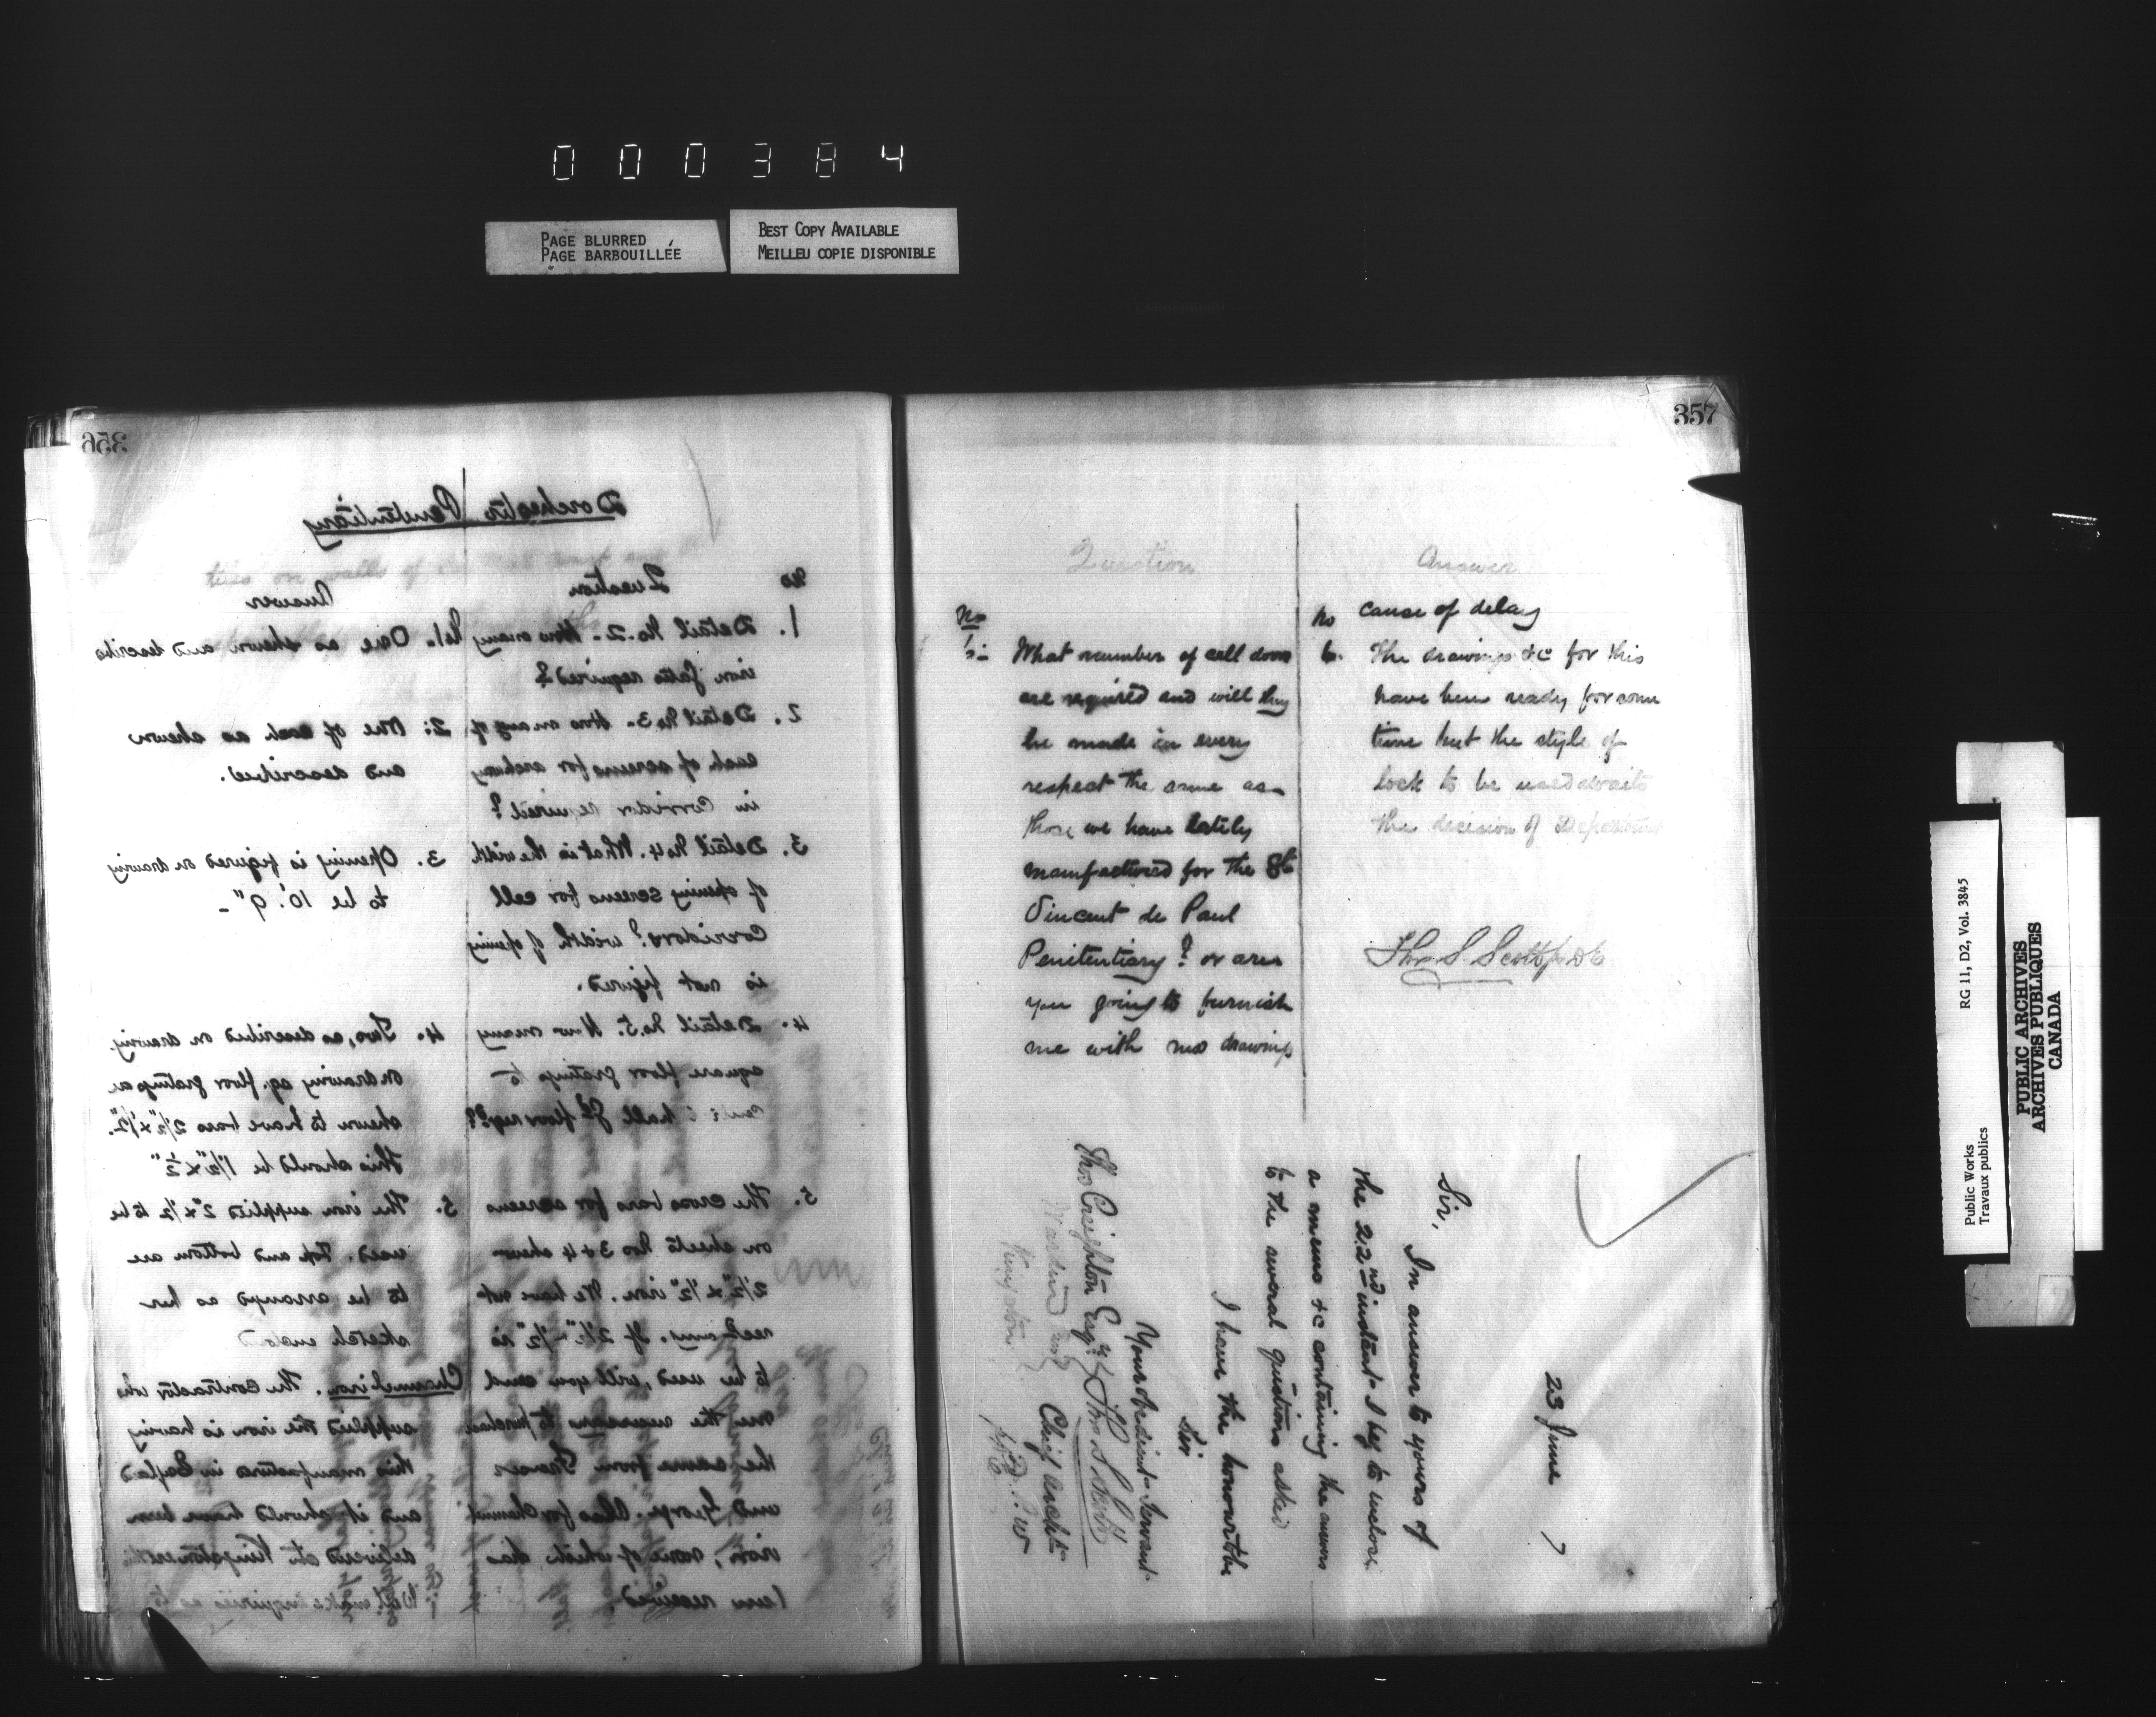 000384
PAGE BLURRED
PAGE BARBOUILLÉE
BEST COPY AVAILABLE
MEILLEU COPIE DISPONIBLE
356
Dorchester Penitentiary
No Question
Answer
1. Detail No. 2. How many
iron gates required?
No 1. One as shewn and describe
2. Detail No 3. How many of
each of screens for archway
in corridor required?
2: One of each as shewn
and described.
3. Detail No 4. What is the width
of opening screens for cell
corridors? width of opening
is not figured.
3. Opening is figured on drawing
to be 10'. 9" -
4. Detail No 5. How many
square floor gratings to
hall floor
4. Two, as described on drawing.
on drawing sq. floor gratings are
shewn to have bars 2½" x ½".
this should be 1½" x ½"
5. The cross bars for screens
on sheets Nos 3 & 4 shew
2½" x ½" iron. We have not
recd any. If 2½" x ½" is
to be used, will you send
me the necessary to purchase
the same from
and George. Also for Channel
iron, none of which has
been received
5. The iron supplied 2" x ½ to be
used. Top and bottom are
to be arranged as per
sketch enclosed
Channel iron. The contractor who
supplied the iron is having
this manufactured in England
and it should have been
delivered at Kingston
Will make inquiries as to
357
Question
No
What number of cell doors
are required and will they
be made in every
respect the same as
those we have lately
manufactured for the St
Vincent de Paul
Penitentiary? or are
you going to furnish
me with new drawings
Answer
No cause of delay
6. The drawings &c for this
have been ready for some
time but the style of
lock to be used awaits
the decision of Department
Thos S Scott
23 June 7
Sir,
In answer to yours of
the 22nd instant I beg to inclose
a memo &c containing the answers
to the several questions asked
I have the honour to be
Sir
Your obedient Servant
Thos S Scott
Chief Archt
D. P. W
Thos Creighton Esqre
Warden
Kingston
Public Works
Travaux publics
RG 11, D2, Vol. 3845
PUBLIC ARCHIVES
ARCHIVES PUBLIQUES
CANADA